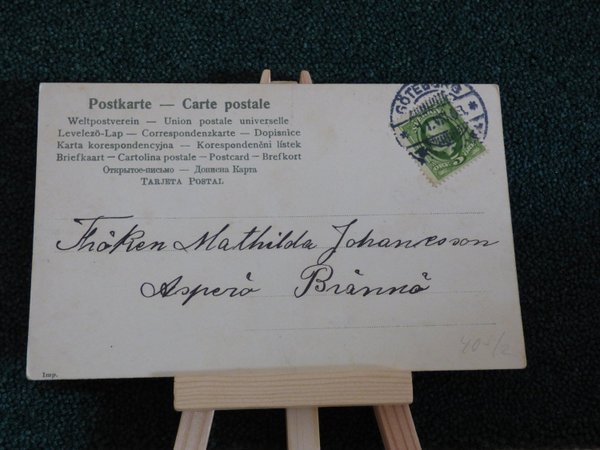 Postkarte — Carte postale
Weltpostverein — Union postale universelle
Levelező-Lap — Correspondenzkarte — Dopisnice
Karta korespondencyjna — Korespondenčni lístek
Briefkaart — Cartolina postale — Postcard — Brefkort
Открытое-письмо — Дописна Карта
TARJETA POSTAL
GÖTEBORG
5
Fröken Mathilda Johannesson
Asperö Brännö
40-/2
Imp.